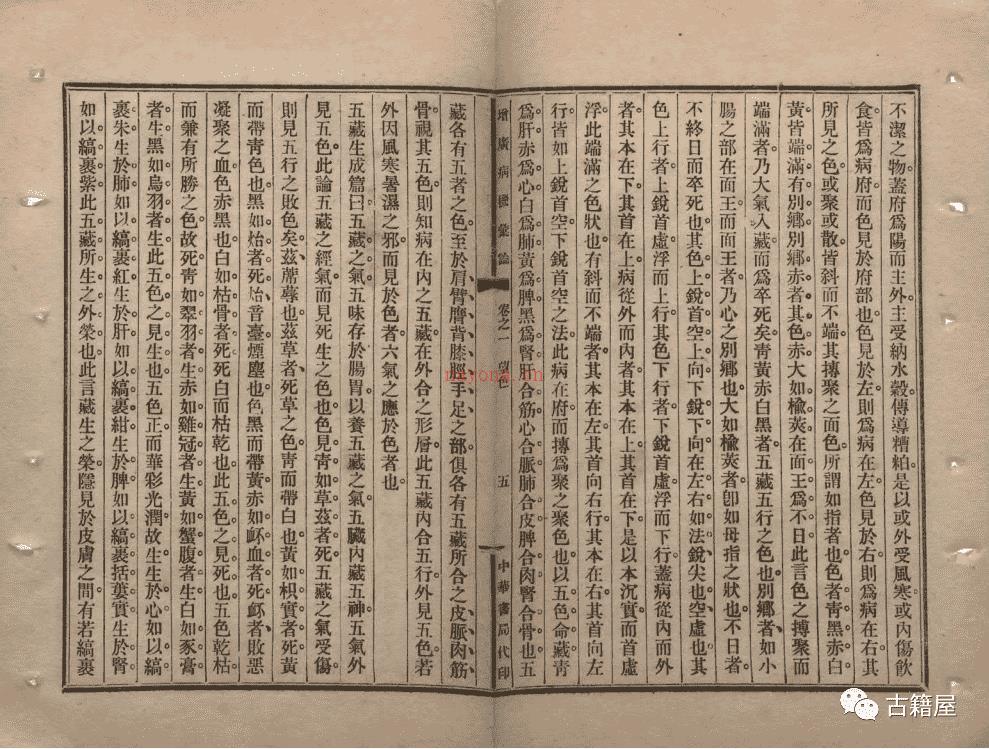 不潔之物蓋府爲陽而主外主受納水穀傳導糟粕是以或外受風寒或內傷飲
食皆爲病府而色見於府部也色見於左則爲病在左色見於右則爲病在右其
所見之色或聚或散皆斜而不端其搏聚之面色所謂如指者也色者靑黑赤白
黃皆端滿有別鄉別鄉赤者其色赤大如楡莢在面王爲不日此言色之搏聚而
端滿者乃大氣入藏而爲卒死矣靑黃赤白黑者五藏五行之色也別鄉者如小
腸之部在面王而面王者乃心之別鄉也大如楡莢者卽如母指之狀也不日者
不終日而卒死也其色上銳首空上向下銳下向在左右如法銳尖也空虛也其
色上行者上銳首虛浮而上行其色下行者下銳首虛浮而下行蓋病從內而外
者其本在下其首在上病從外而內者其本在上其首在下是以本沉實而首虛
浮此端滿之色狀也有斜而不端者其本在左其首向右行其本在右其首向左
行皆如上銳首空下銳首空之法此病在府而搏爲聚之聚色也以五色命藏靑
爲肝赤爲心白爲肺黃爲脾黑爲腎肝合筋心合脈肺合皮脾合肉腎合骨也五
增廣病機彙論 卷之一 五 中華書局代印
藏各有五者之色至於肩臂膺背膝脛手足之部俱各有五藏所合之皮脈肉筋
骨視其五色則知病在內之五藏在外合之形層此五藏內合五行外見五色若
外因風寒暑濕之邪而見於色者六氣之應於色者也
五藏生成篇曰五藏之氣五味存於腸胃以養五藏之氣五臟內藏五神五氣外
見五色此論五藏之經氣而見死生之色也色見靑如草茲者死五藏之氣受傷
則見五行之敗色矣茲蓆蓐也茲草者死草之色靑而帶白也黃如枳實者死黃
而帶靑色也黑如炲者死炲音臺煙塵也色黑而帶黃赤如衃血者死衃者敗惡
凝聚之血色赤黑也白如枯骨者死死白而枯乾也此五色之見死也五色乾枯
而兼有所勝之色故死靑如翠羽者生赤如雞冠者生黃如蟹腹者生白如豕膏
者生黑如烏羽者生此五色之見生也五色正而華彩光潤故生生於心如以縞
裹朱生於肺如以縞裹紅生於肝如以縞裹紺生於脾如以縞裹括蔞實生於腎
如以縞裹紫此五藏所生之外榮也此言藏生之榮隱見於皮膚之間有若縞裹
古籍屋